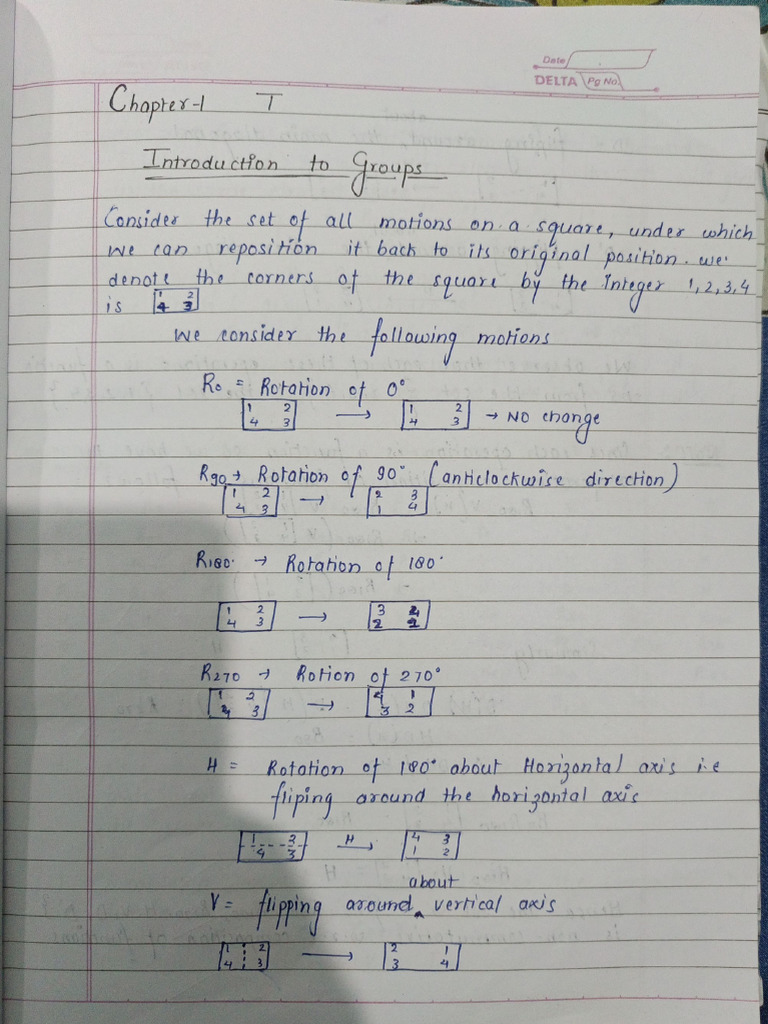 Date
DELTA Pg No.
Chapter-1 I
Introduction to Groups
Consider the set of all motions on a square, under which
we can reposition it back to its original position. we
denote the corners of the square by the Integer 1,2,3,4
is 1 2
4 3
We consider the following motions
R0 = Rotation of 0°
1 2 → 1 2 → No change
4 3 4 3
R90 → Rotation of 90° (anticlockwise direction)
1 2 → 2 3
4 3 1 4
R180° → Rotation of 180°
1 2 → 3
4 3 2
R270 → Rotion of 270°
1 2 → 4 1
4 3 3 2
H = Rotation of 180° about Horizontal axis i.e
fliping around the horizontal axis
1 2 H→ 4 3
4 3 1 2
about
V = flipping around ^ vertical axis
1 2 → 2 1
4 3 3 4